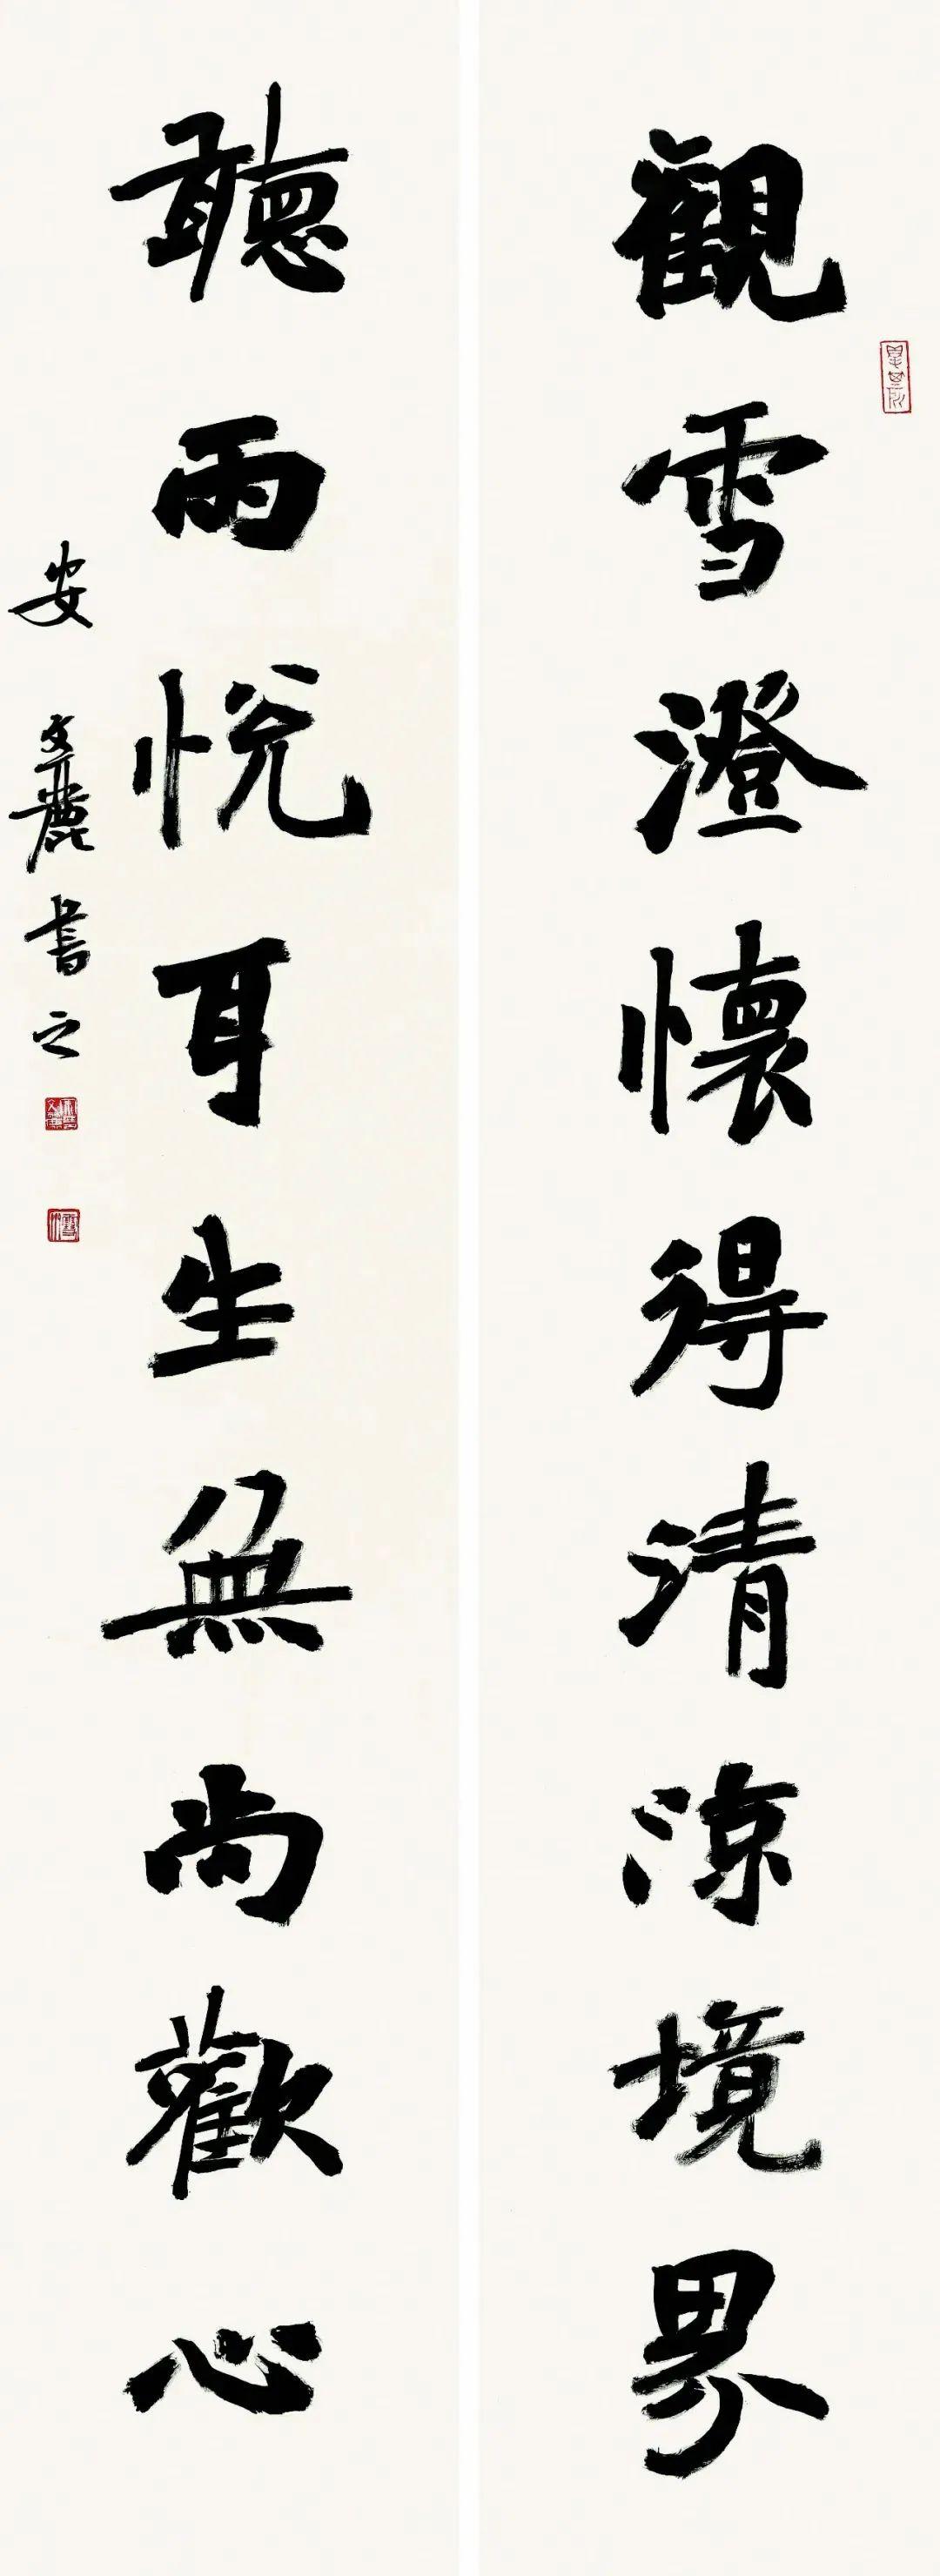 觀雪澄懷得清涼境界
聽雨悅耳生無尚歡心
安文麗書之